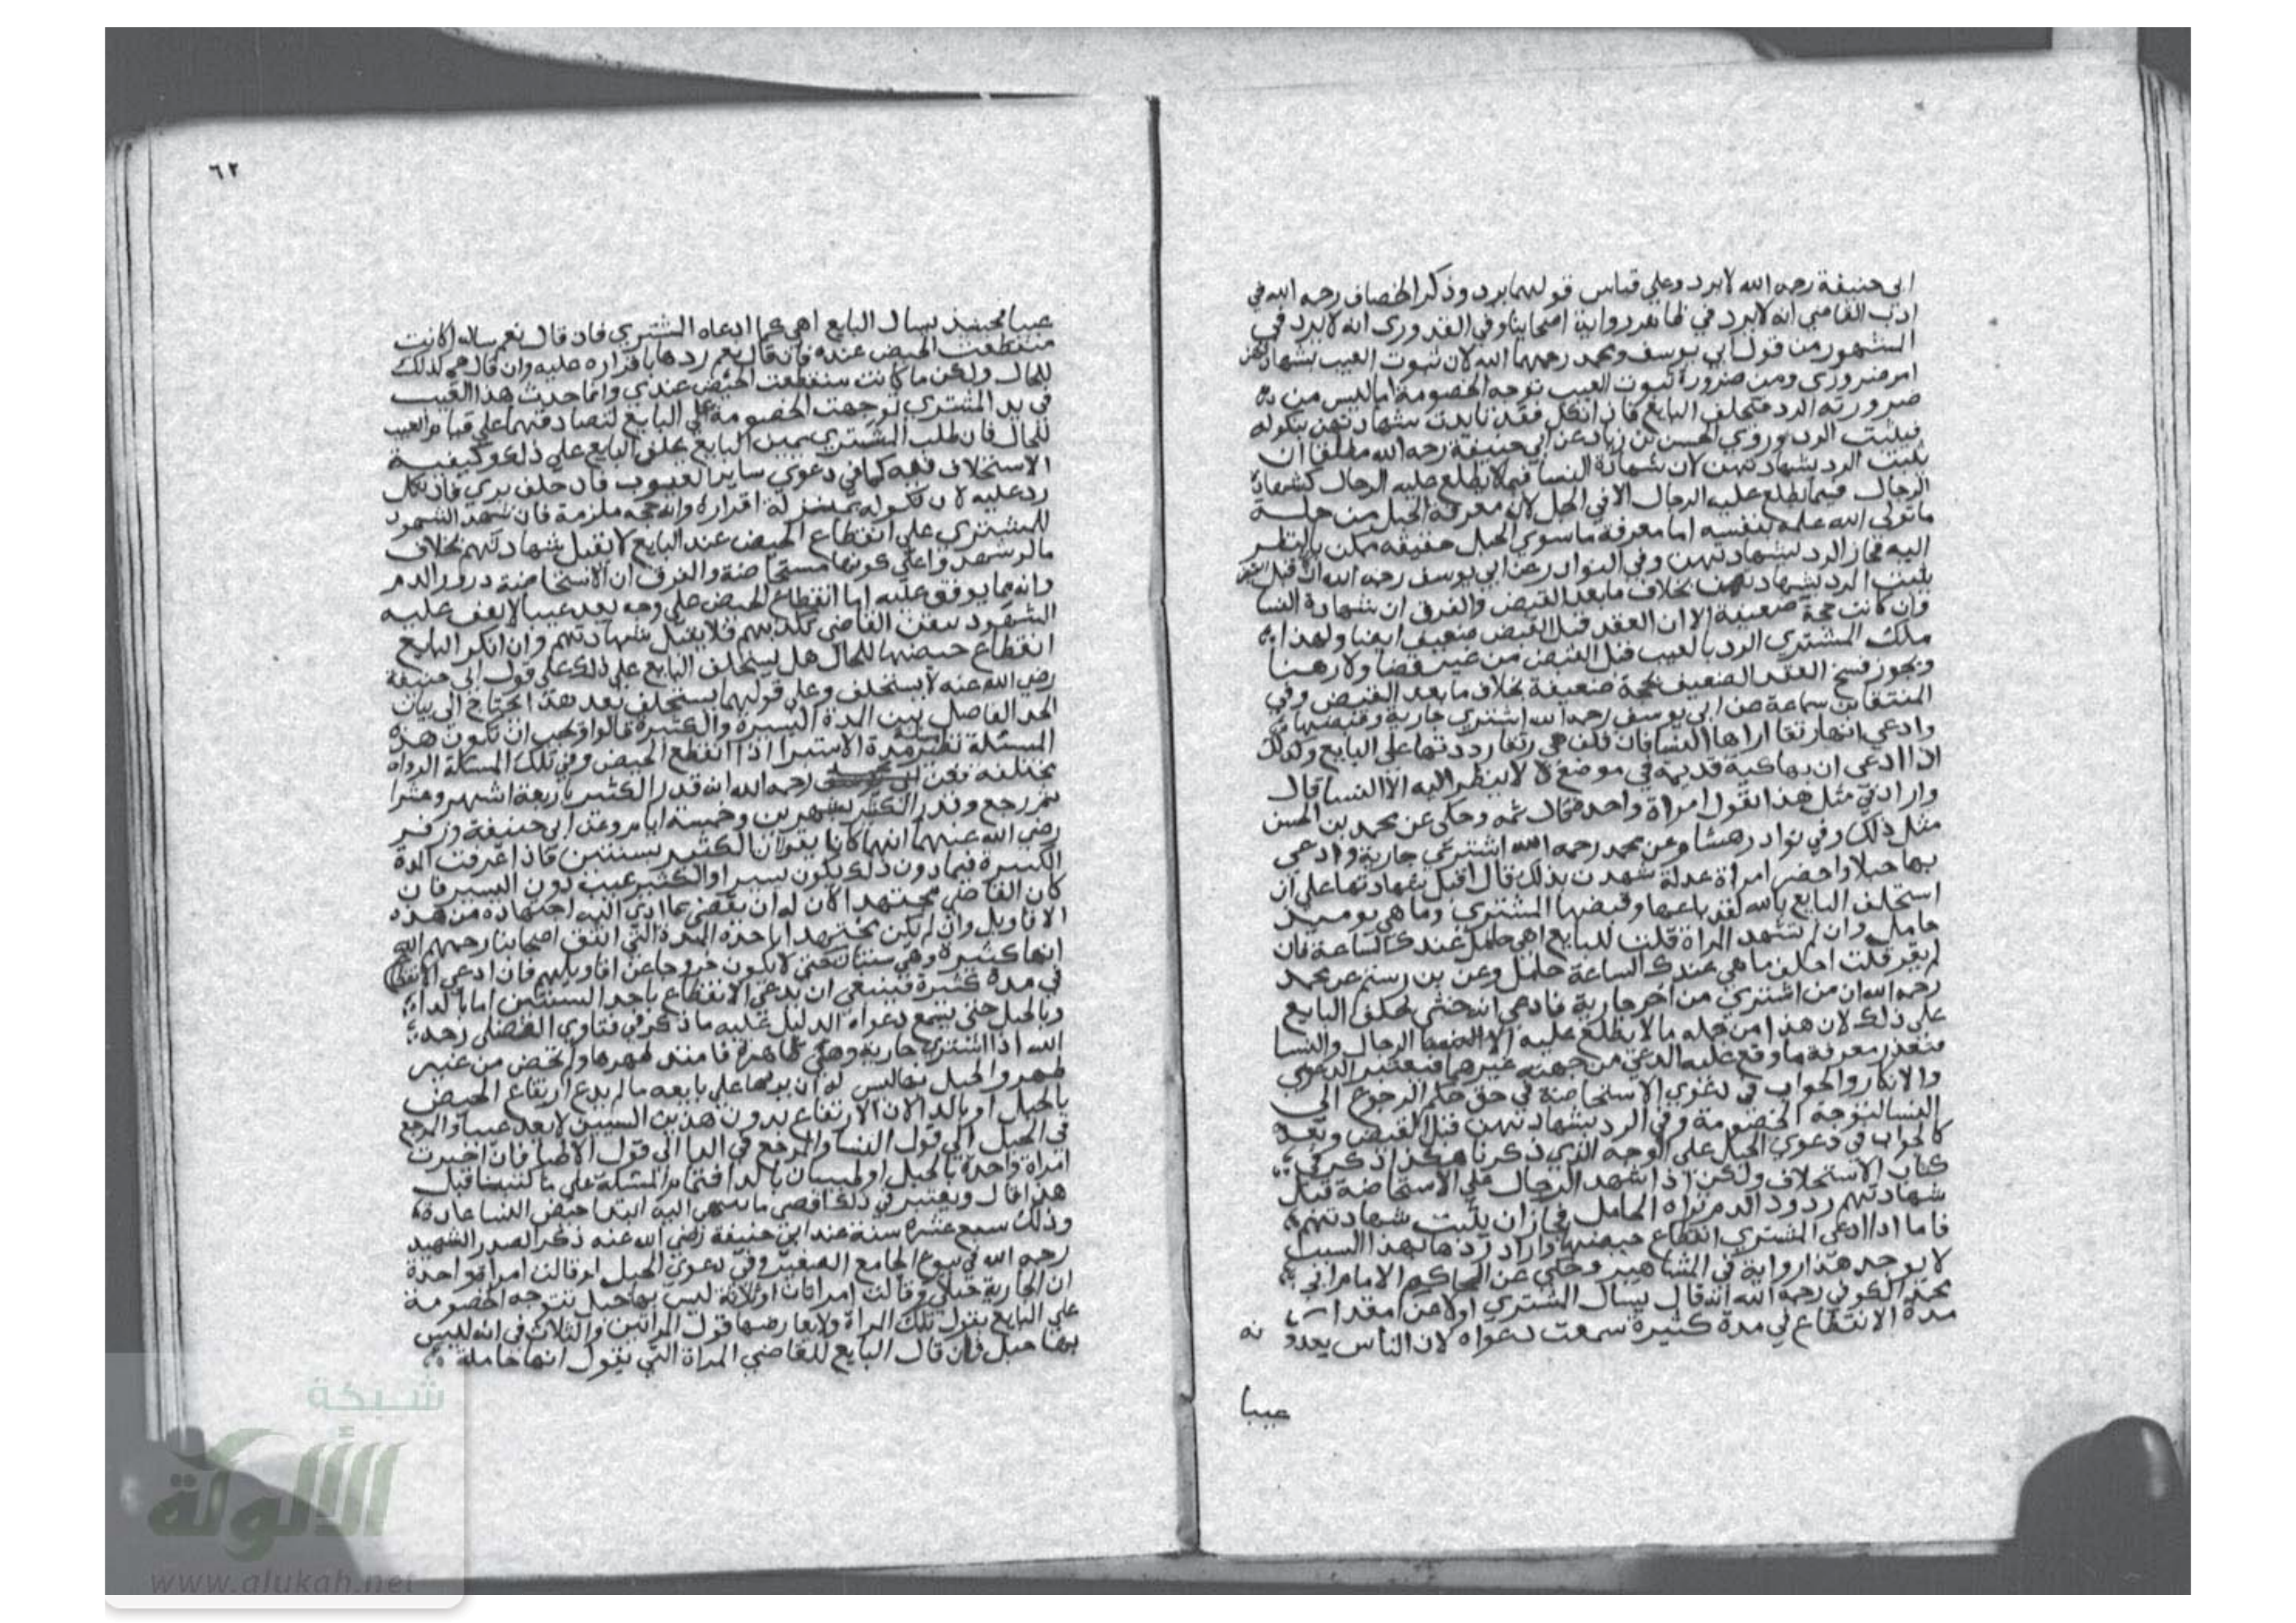 ابى حنيفة رحمه الله لا يرد وعلى قياس قولهما يرد وذكر الخصاف رحمه الله في
ادب القاضي انه لا يرد في ظاهر رواية اصحابنا وفي القدوري انه لا يرد في
المشهور من قول ابي يوسف ومحمد رحمهما الله لان ثبوت العيب بشهادتهن
امر ضروري ومن ضرورة ثبوت العيب توجه الخصومة اما ليس من
ضرورته الرد فيحلف البايع فان انكل فقد تايدت شهادتهن بنكوله
فيثبت الرد وروي الحسن بن زياد عن ابي حنيفة رحمه الله مطلقا ان
يثبت الرد بشهادتهن لان شهادة النسا فيما لا يطلع عليه الرجال كشهادة
الرجال فيما يطلع عليه الرجال الا في الحبل لان معرفة الحبل من جملة
ما تولى الله علمه بنفسه اما معرفة ما سوي الحبل حقيقة ممكن بالنظر
اليه فجاز الرد بشهادتهن وفي النوادر عن ابي يوسف رحمه الله ان قبل
يثبت الرد بشهادتهن بخلاف ما بعد القبض والفرق ان شهادة النسا
وان كانت حجة ضعيفة الا ان العقد قبل القبض ضعيف ايضا ولهذا
ملك المشتري الرد بالعيب قبل القبض من غير قضا ولا رضا
ويجوز فسخ العقد الضعيف بحجة ضعيفة بخلاف ما بعد القبض وفي
المنتقا بن سماعة عن ابي يوسف رحمه الله اشتري جارية وقبضها
وادعي انها رتقا اراها النسا فان قلن هي رتقا رددتها على البايع وكذلك
اذا ادعى ان بها كية قديمة في موضع لا ينظر اليه الا النسا قال
وارادتي مثل هذا بقول امراة واحدة فقال ثمه وحكى عن محمد بن الحسن
مثل ذلك وفي نوادر هشام وعن محمد رحمه الله اشتري جارية وادعي
بها حبلا واحضر امراة عدلة شهدت بذلك قال اقبل شهادتها على ان
استحلف البايع بالله لقد باعها وقبضها المشتري وما هي يوميذ
حامل وان لم تشهد المراة قلت للبايع اهي حامل عندك الساعة فان
لم يقر قلت احلف ما هي عندك الساعة حامل وعن بن رستم عن محمد
رحمه الله ان من اشتري من اخر جارية فادعي انه خنثى يحلف البايع
على ذلك لان هذا من جملة ما لا يطلع عليه الرجال والنسا
فتعذر معرفة ما وقع عليه الدعوى من جهة غيرهما فيعتبر الدعوي
والانكار والجواب في دعوي الاستحاضة في حق حكم الرجوع الى
النسا لتوجه الخصومة وفي الرد بشهادتهن قبل القبض وبعده
كالجواب في دعوي الحبل على الوجه الذي ذكرنا هكذا ذكر في
كتاب الاستحلاف ولكن اذا شهد الرجال على الاستحاضة قبل
شهادتهم درور الدم تراه الحامل فجاز ان يثبت شهادتهم
فاما اذا ادعى المشتري انقطاع حيضها واراد ردها بهذا السبب
لا يوجد هذا رواية في المشاهير وحكي عن الحاكم الامام ابي
محمد الكوفي رحمه الله انه قال يسال المشتري اولا عن مقدار
مدة الانقطاع في مدة كثيرة سمعت دعواه لان الناس يعدونه
عيبا
٦٢
عيبا فحينئذ يسال البايع اهي كما ادعاه المشتري فان قال نعم ساله اكانت
منقطعت الحيض عنده فان قال نعم ردها باقراره عليه وان قال هي كذلك
للحال ولكن ما كانت منقطعت الحيض عندي وانما حدث هذا العيب
في يد المشتري توجهت الخصومة على البايع لتصادقهما على قيام العيب
للحال فان طلب المشتري يمين البايع يحلف البايع على ذلك وكيفية
الاستحلاف فيه كما في دعوي ساير العيوب فان حلف بري فان نكل
رد عليه لان نكوله بمنزلة اقراره وانه حجه ملزمة فان شهد الشهود
للمشتري على انقطاع الحيض عند البايع لا يقبل شهادتهم بخلاف
ما لو شهدوا على كونها مستحاضة والفرق ان الاستحاضة درور الدم
وانه مما يوقف عليه اما انقطاع الحيض على وجه يعد عيبا لا يقف عليه
الشهود فيتيقن القاضي بكذبهم فلا يقبل شهادتهم وان انكر البايع
انقطاع حيضها للحال هل يستحلف البايع على ذلك على قول ابي حنيفة
رضي الله عنه لا يستحلف وعلى قولهما يستحلف بعد هذا يحتاج الى بيان
الحد الفاصل بين المدة اليسيرة والكثيرة قالوا ويجب ان تكون هذه
المسئلة نظير مدة الاستبرا اذا انقطع الحيض وفي تلك المسئلة الرواه
مختلفه فعن رحمه الله انه قدر الكثير باربعة اشهر وعشرا
ثم رجع وقدر الكثير بشهرين وخمسة ايام وعن ابي حنيفة وزفر
رضي الله عنهما انهما كانا يقولان الكثير بسنتين فاذا عرفت المدة
الكبيرة فما دون ذلك يكون يسيرا والكثير عيب دون اليسير فان
كان القاضي مجتهدا الان له ان يقضي بما ادى اليه اجتهاده من هذه
الاقاويل وان لم يكن مجتهدا ياخذه المدة التي اتفق اصحابنا رحمهم الله
انها كثيرة وهي سنتان حتى لا يكون خروجا عن اقاويلهم فان ادعي الانقطاع
في مدة كثيرة فينبغي ان يدعي الانقطاع باحد السببين اما بالداء
وبالحبل حتى يسمع دعواه الدليل عليه ما ذكر في فتاوي الفضلى رحمه
الله اذا اشتري جارية وهي طاهرة فامتد طهرها ولم تحض من غير
ظهور الحبل بها ليس له ان يردها على بايعه ما لم يدع ارتفاع الحيض
بالحبل او بالدا لان الارتفاع بدون هذين السببين لا يعد عيبا والمرجع
في الحبل الى قول النسا والمرجع في الدا الى قول الاطبا فان اخبرت
امراة واحدة بالحبل او طبيبان بالدا فتمام المسئلة على ما كتبنا قبل
هذا قال ويعتبر في ذلك اقصى ما ينتهي اليه ابتدا حيض النسا عادة
وذلك سبع عشرة سنة عند ابي حنيفة رضي الله عنه ذكر الصدر الشهيد
رحمه الله في بيوع الجامع الصغير وفي دعوي الحبل لو قالت امراة واحدة
ان الجارية حبلى وقالت امراتان او ثلاثة ليس بها حبل يتوجه الخصومة
على البايع بقول تلك المراة ولا يعارضها قول المراتين والثلاث في انه ليس
بها حبل فان قال البايع للقاضي المراة التي يقول انها حاملة
شبكة
الألوكة
www.alukah.net